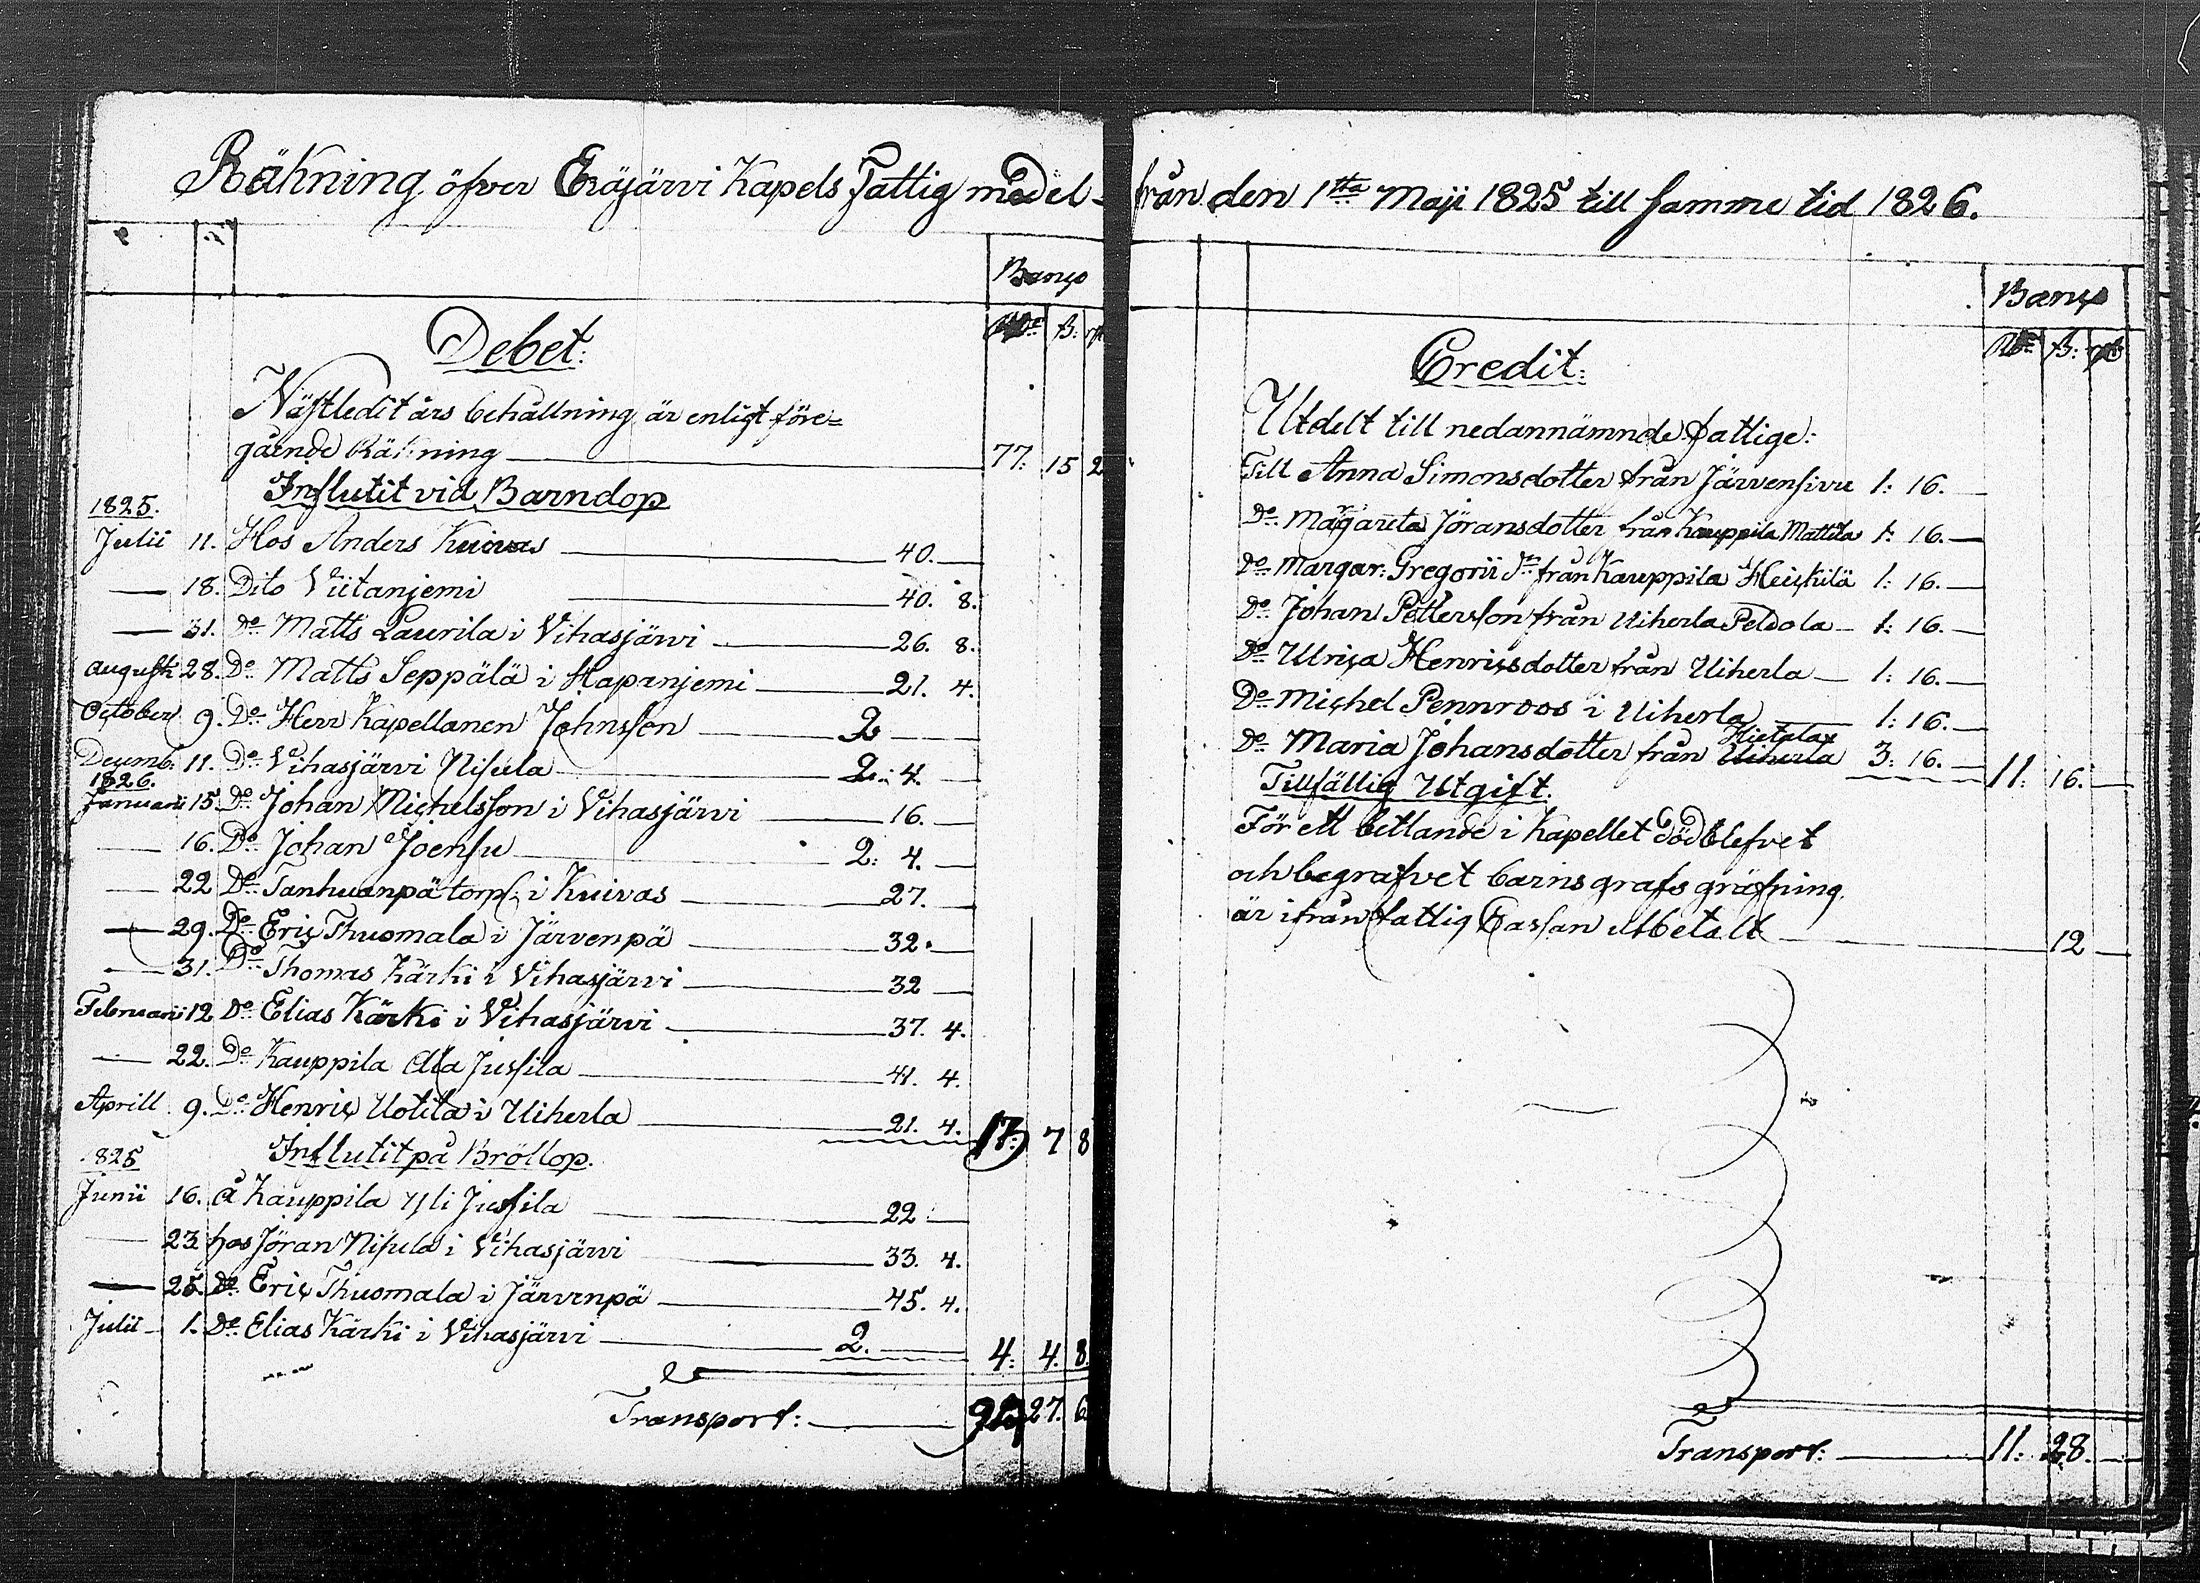 Räkning öfver Eräjärvi Kapels Fattig medel från den 1sta Maji 1825 till samme tid 1826.
Banco
Rd. ß: rst
Debet:
Nästledit års behållning är enligt före=
gående Räkning 77: 15 2
Influtit vid Barndop
1825.
Julii 11. Hos Anders Kuivas 40.
— 18. Dito Viitanjemi 40. 8.
— 31. Do Matts Laurila i Vihasjärvi 26. 8.
Augusti 28. Do Matts Seppälä i Hapanjemi 21. 4.
October 9. Do Herr Kapellanen Johnsson 2
Decemb: 11. Do Vihasjärvi Nisula 2: 4.
1826.
Januarii 15. Do Johan Michelsson i Vihasjärvi 16.
— 16. Do Johan Joensu 2: 4.
— 22 Do Tanhuanpä torp: i Kuivas 27.
— 29. Do Eric Thuomala i Järvenpä 32.
— 31. Do Thomas Kärki i Vihasjärvi 32
Februarii 12 Do Elias Kärki i Vihasjärvi 37. 4.
— 22. Do Kauppila Ala Jussila 41. 4.
Aprill 9. Do Henric Uotila i Uiherla 21. 4. 17: 7 8
Influtit på Bröllop.
1825
Junii 16. å Kauppila Yli Jussila 22
— 23 hos Jöran Nisula i Vihasjärvi 33. 4.
— 25. Do Eric Thuomala i Järvenpä 45. 4.
Julii 1. Do Elias Kärki i Vihasjärvi 2. 4: 4. 8.
Transport: 27. 6.
Banco
Rd. ß: rst
Credit:
Utdelt till nedannämnde fattige:
Till Anna Simonsdotter från Järvensivu 1: 16.
Do Margareta Jöransdotter från Kauppila Mattila 1: 16.
Do Margar: Gregorii dr från Kauppila Heickilä 1: 16.
Do Johan Pettersson från Uiherla Peldola 1: 16.
Do Ulrica Henricsdotter från Uiherla 1: 16.
Do Michel Pennroos i Uiherla 1: 16.
Hietala
Do Maria Johansdotter från Uiherla 3: 16. 11: 16.
Tillfällig Utgift.
För ett betlande i Kapellet dödblefvet
och begrafvet barns grafs gräfning
är ifrån fattig Cassan utbetalt 12
Transport: 11: 28.